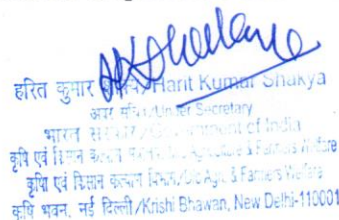 हरित कुमार /Harit Kumar Shakya
/Under Secretary
भारत /Government of India
कृषि एवं किसान कल्याण /o Agriculture & Farmers Welfare
कृषि एवं किसान कल्याण विभाग/D/o Agri. & Farmers Welfare
कृषि भवन, नई दिल्ली/Krishi Bhawan, New Delhi-110001